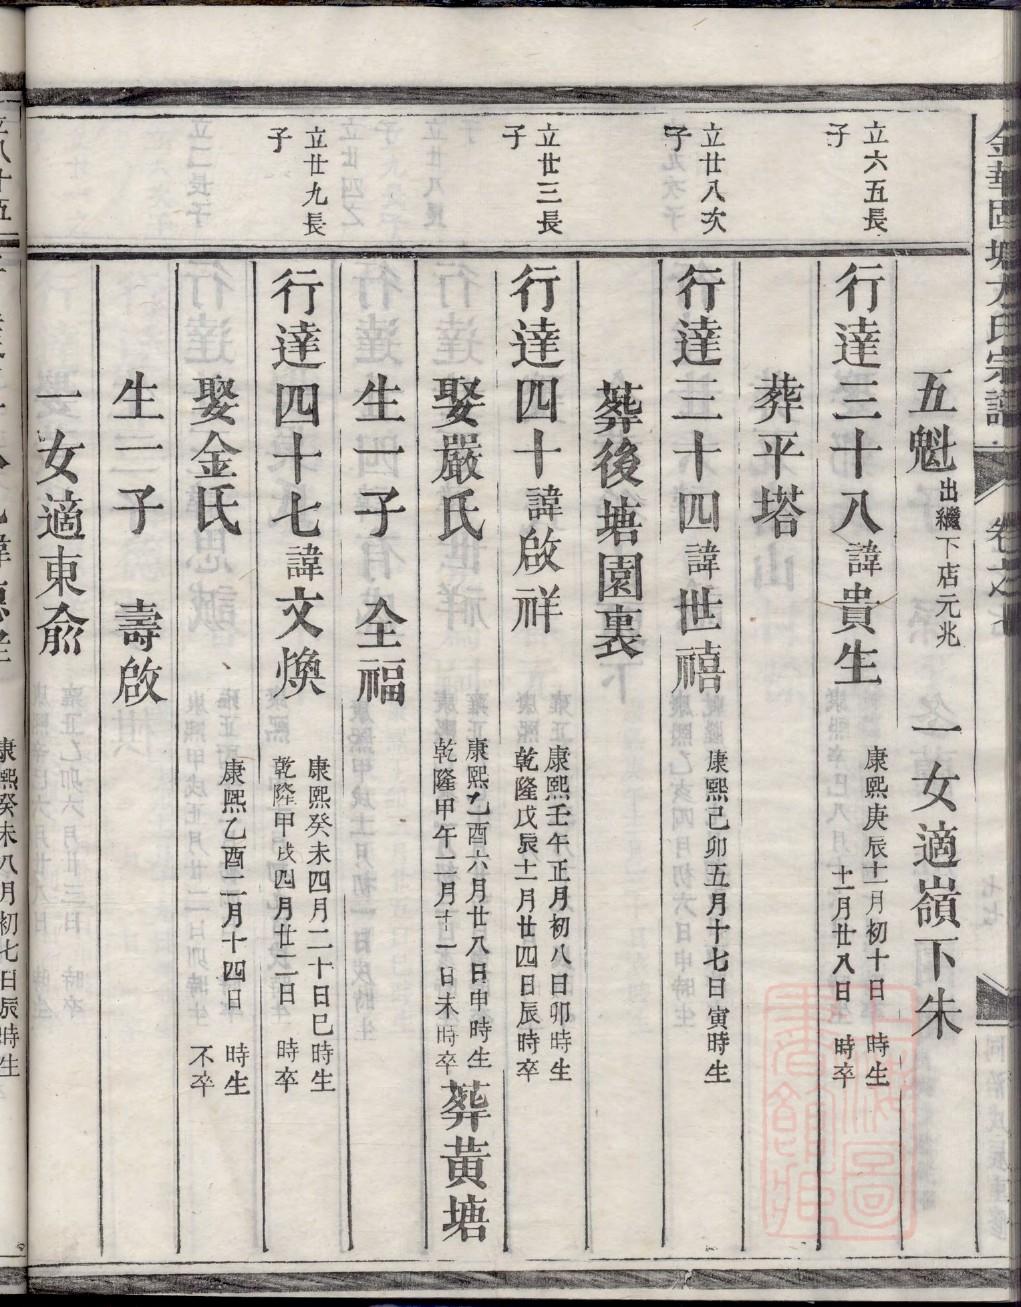 五魁出繼下店元兆 一女適嶺下朱
立六五長子
行達三十八諱貴生 康熙庚辰十一月初十日 時生
十一月廿八日 時卒
葬平塔
立廿八次子
行達三十四諱世禧 康熙己卯五月十七日寅時生
葬後塘園裏
立廿三長子
行達四十諱啟祥 康熙壬午正月初八日卯時生
乾隆戊辰十一月廿四日辰時卒
娶嚴氏 康熙乙酉六月廿八日申時生
乾隆甲午二月十一日未時卒 葬黃塘
生一子 全福
立廿九長子
行達四十七諱文煥 康熙癸未四月二十日巳時生
乾隆甲戌四月廿二日 時卒
娶金氏 康熙乙酉二月十四日 時生
不卒
生一子 壽啟
一女適東俞
康熙癸未八月初七日辰時生